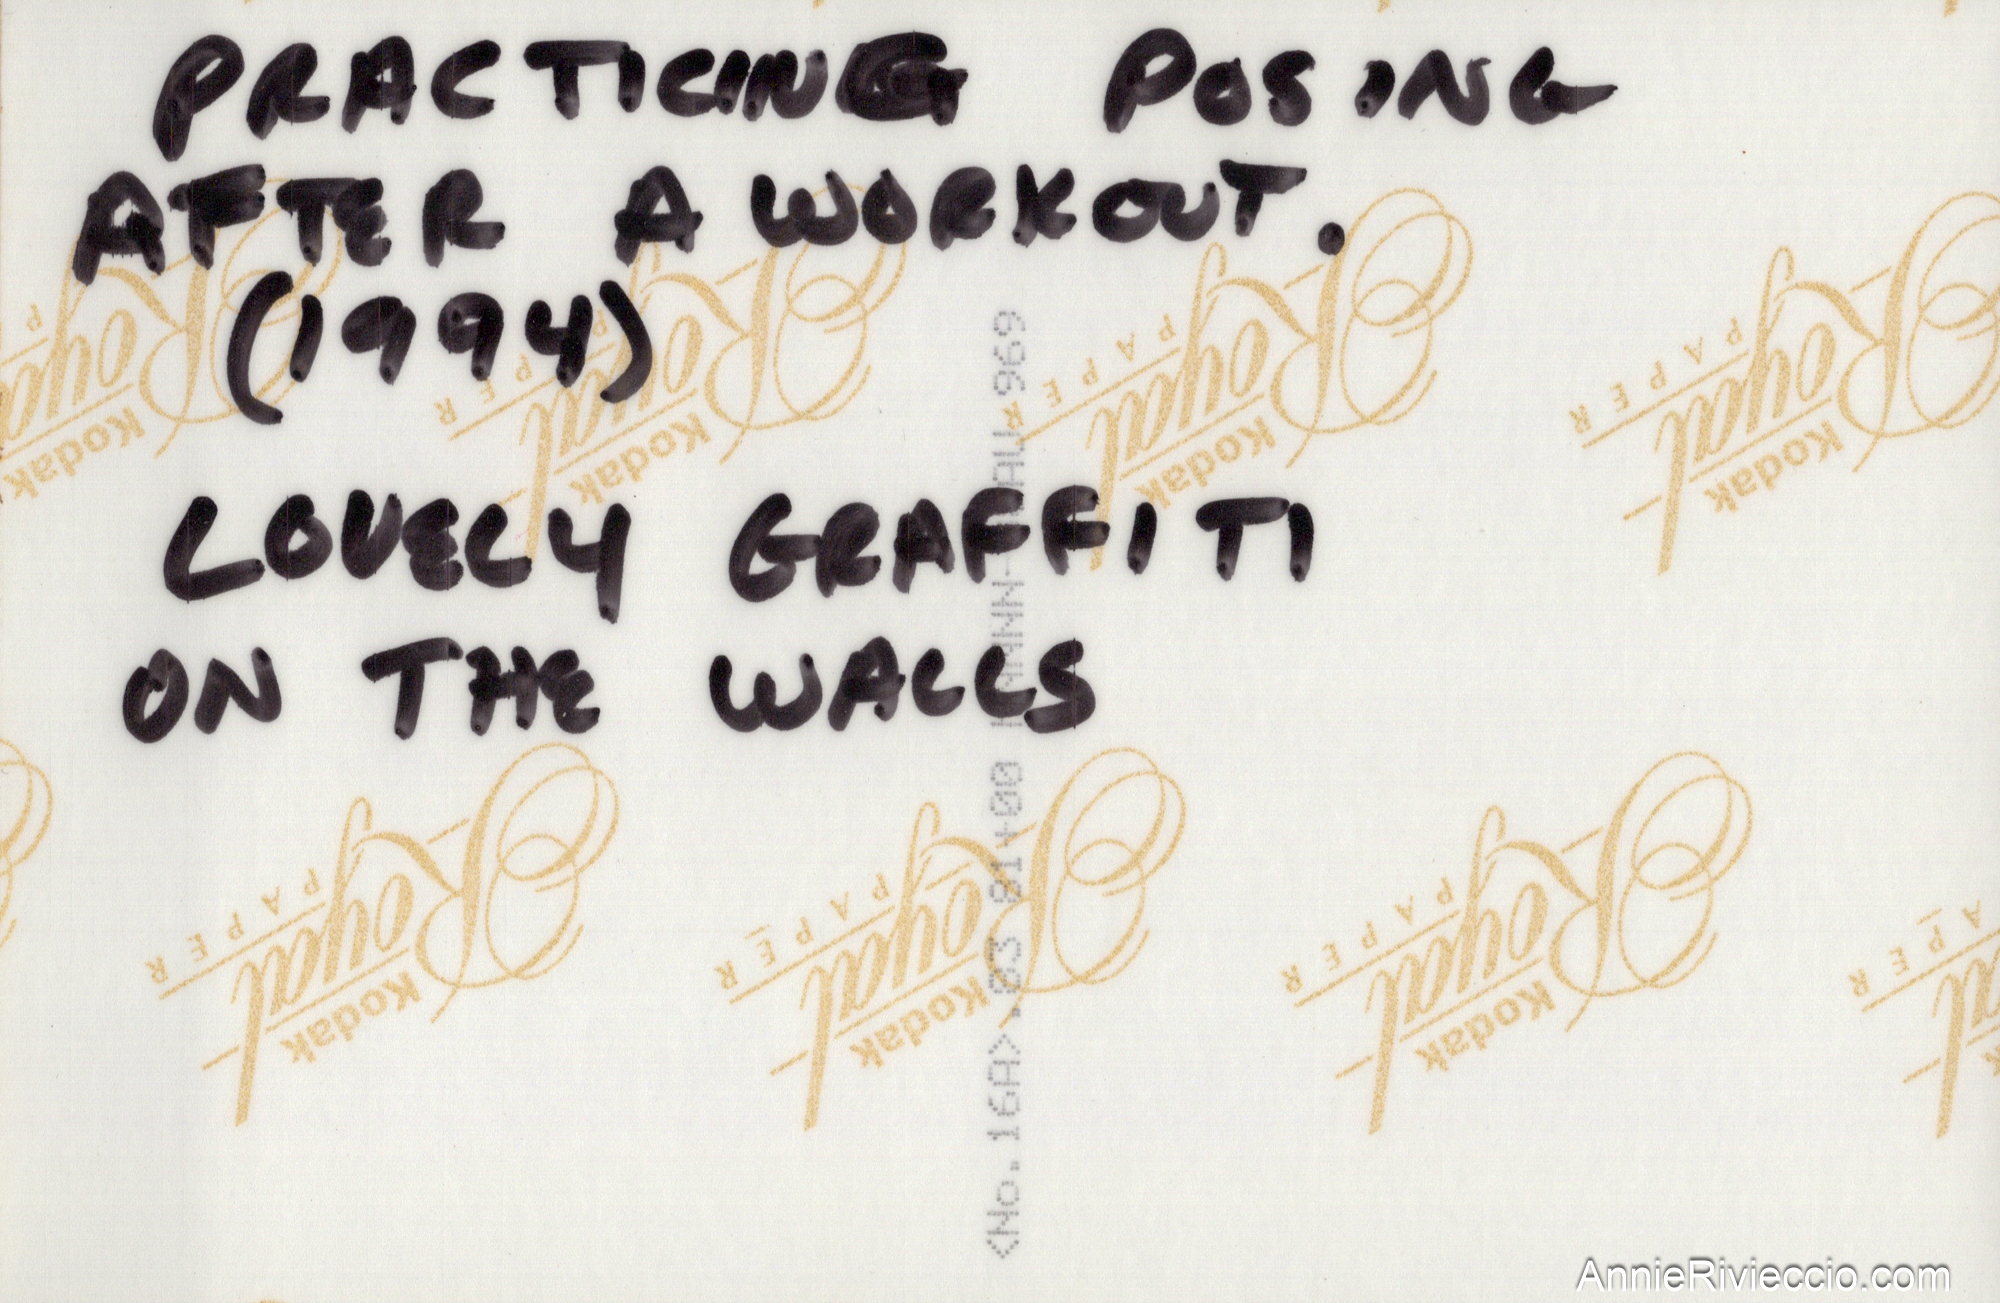 PRACTICING POSING
AFTER A WORKOUT.
(1994)
LOVELY GRAFFITI
ON THE WALLS
Kodak
Royal
PAPER
Kodak
Royal
PAPER
Kodak
Royal
PAPER
Kodak
Royal
PAPER
Kodak
Royal
PAPER
Kodak
Royal
PAPER
Kodak
Royal
PAPER
<No.16A>.03 01+00 969
AnnieRivieccio.com